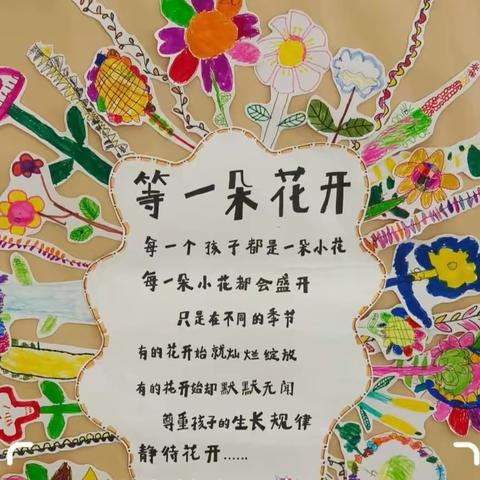 等一朵花开
每一个孩子都是一朵小花
每一朵小花都会盛开
只是在不同的季节
有的花开始就灿烂绽放
有的花开始却默默无闻
尊重孩子的生长规律
静待花开......